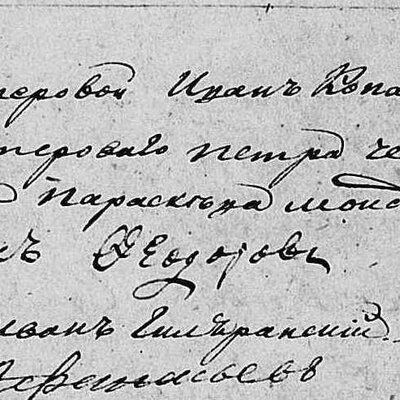 теровой Иванъ Копа
терового Петра Че
Параскѣва Моис
ъ Ѳеодоровъ
Иванъ
Афанасьевъ